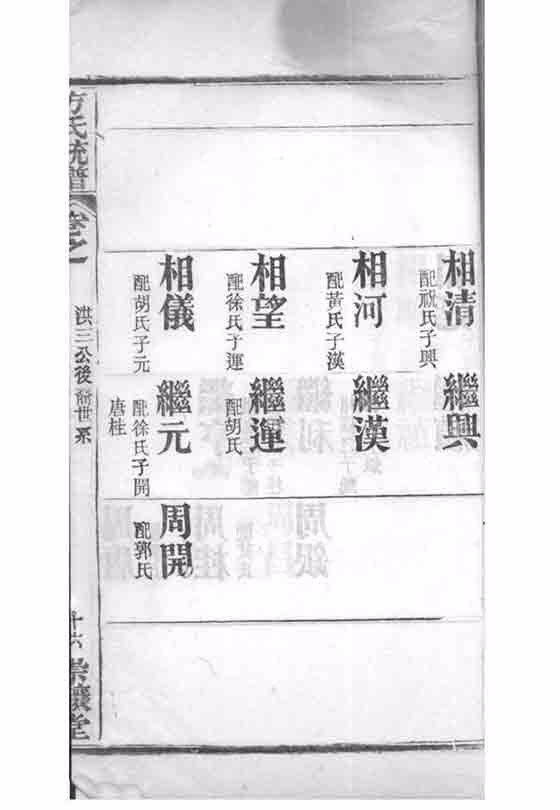 相清
配祝氏子興
繼興
相河
配黃氏子漢
繼漢
相望
配徐氏子運
繼運
配胡氏
相儀
配胡氏子元
繼元
配徐氏子開
唐桂
周開
配郭氏
方氏統譜
卷之一
洪三公後裔世系
十六
堂